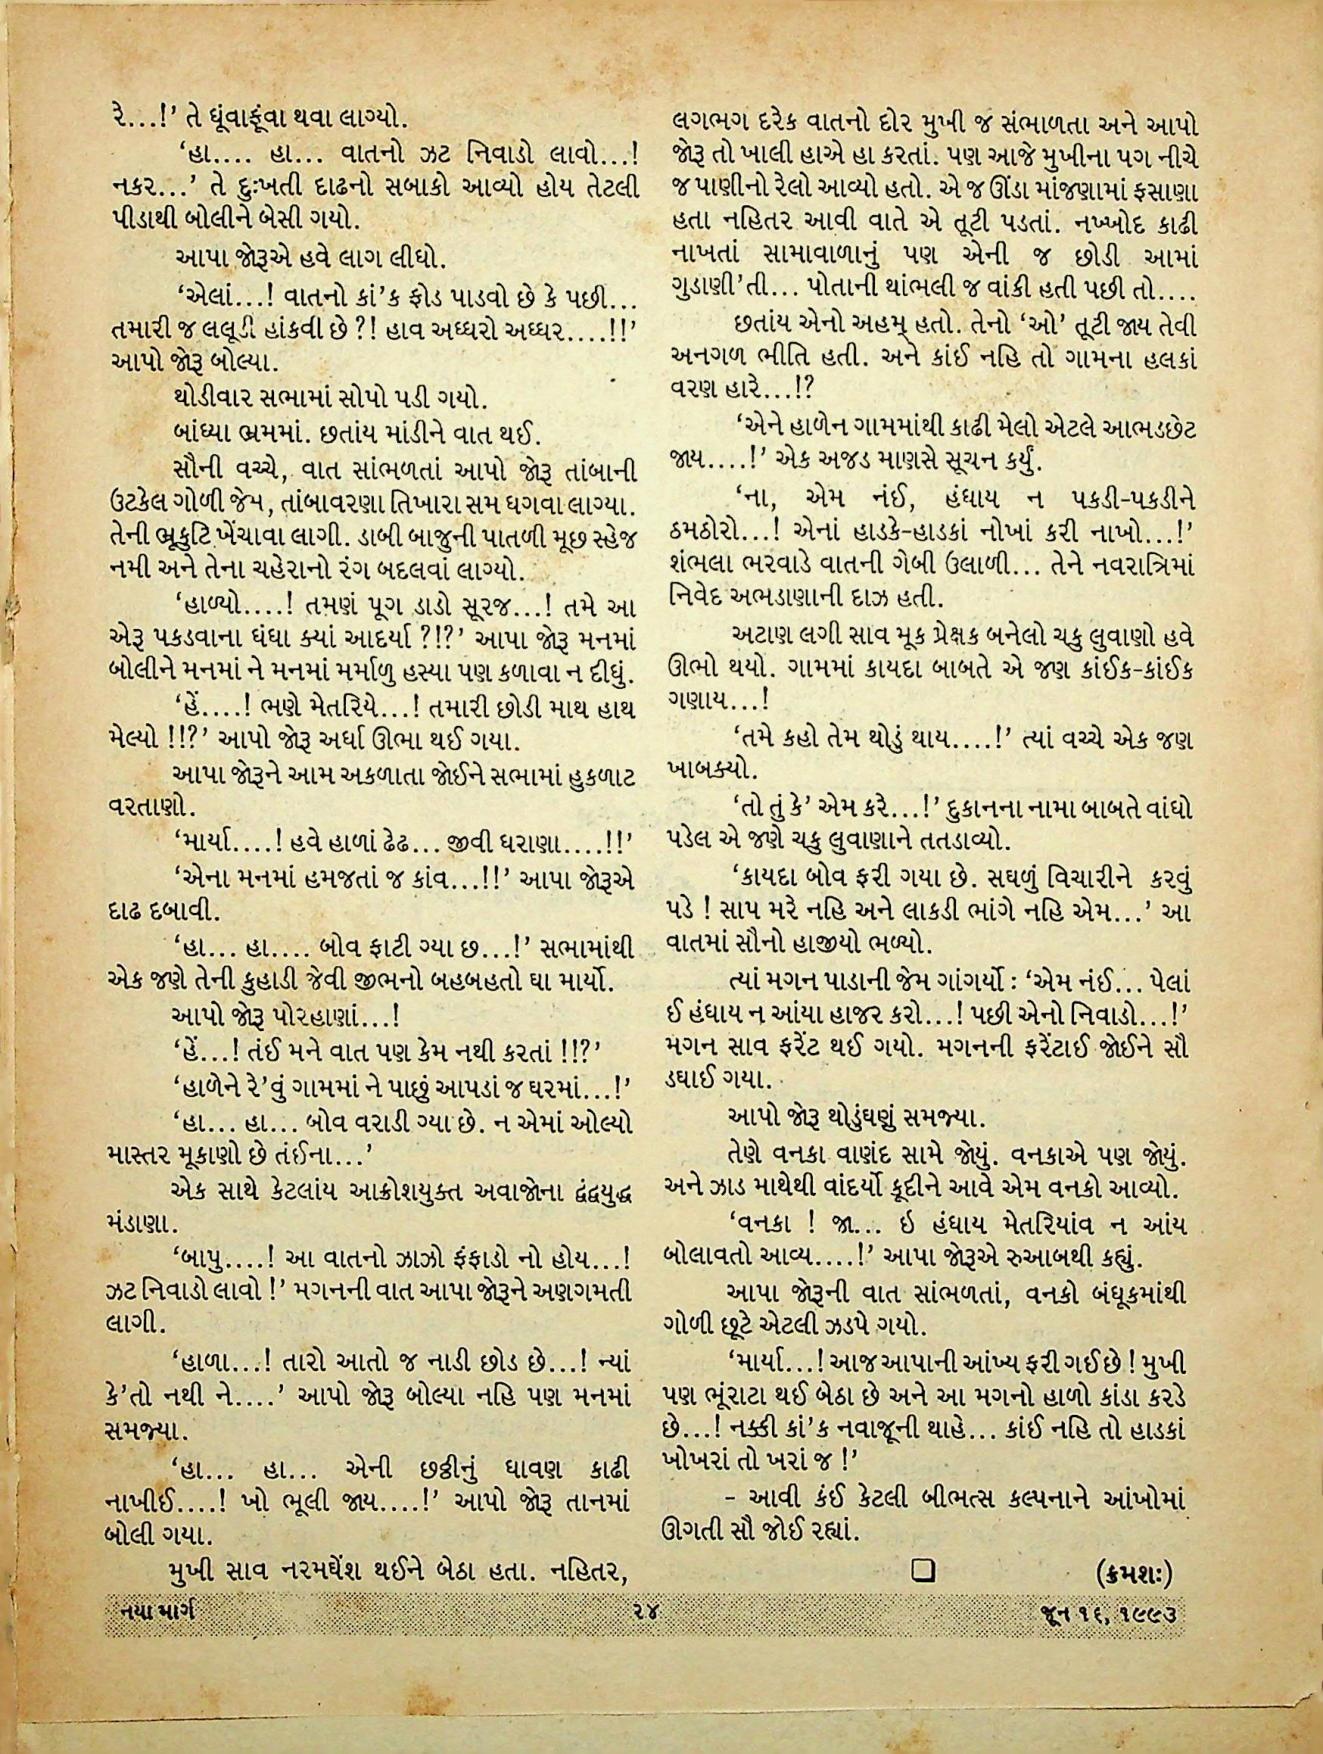 રે...!’ તે ઘૂંવાફૂંવા થવા લાગ્યો.
‘હા.... હા... વાતનો ઝટ નિવાડો લાવો...!
નકર...’ તે દુઃખતી દાઢનો સબાકો આવ્યો હોય તેટલી
પીડાથી બોલીને બેસી ગયો.
આપા જોરૂએ હવે લાગ લીધો.
‘એલાં...! વાતનો કાં’ક ફોડ પાડવો છે કે પછી...
તમારી જ લલૂડી હાંકવી છે ?! હાવ અધ્ધરો અધ્ધર....!!’
આપો જોરૂ બોલ્યા.
થોડીવાર સભામાં સોપો પડી ગયો.
બાંધ્યા ભ્રમમાં. છતાંય માંડીને વાત થઈ.
સૌની વચ્ચે, વાત સાંભળતાં આપો જોરૂ તાંબાની
ઉટકેલ ગોળી જેમ, તાંબાવરણા તિખારા સમ ધગવા લાગ્યા.
તેની ભ્રૂકુટિ ખેંચાવા લાગી. ડાબી બાજુની પાતળી મૂછ સ્હેજ
નમી અને તેના ચહેરાનો રંગ બદલવાં લાગ્યો.
‘હાળ્યો....! તમણં પૂગ ડાડો સૂરજ...! તમે આ
એરૂ પકડવાના ધંધા ક્યાં આદર્યા ?!?’ આપા જોરૂ મનમાં
બોલીને મનમાં ને મનમાં મર્માળુ હસ્યા પણ કળાવા ન દીધું.
‘હેં....! ભણે મેતરિયે...! તમારી છોડી માથ હાથ
મેલ્યો !!?’ આપો જોરૂ અર્ધા ઊભા થઈ ગયા.
આપા જોરૂને આમ અકળાતા જોઈને સભામાં હુકળાટ
વરતાણો.
‘માર્યા....! હવે હાળાં ઢેઢ... જીવી ધરાણા....!!’
‘એના મનમાં હમજતાં જ કાંવ...!!’ આપા જોરૂએ
દાઢ દબાવી.
‘હા... હા.... બોવ ફાટી ગ્યા છ...!’ સભામાંથી
એક જણે તેની કુહાડી જેવી જીભનો બહબહતો ઘા માર્યો.
આપો જોરૂ પોરહાણાં...!
‘હેં...! તંઈ મને વાત પણ કેમ નથી કરતાં !!?’
‘હાળેને રે’વું ગામમાં ને પાછું આપડાં જ ઘરમાં...!’
‘હા... હા... બોવ વરાડી ગ્યા છે. ન એમાં ઓલ્યો
માસ્તર મૂકાણો છે તંઈના...’
એક સાથે કેટલાંય આક્રોશયુક્ત અવાજોના દ્વંદ્વયુદ્ધ
મંડાણા.
‘બાપુ....! આ વાતનો ઝાઝો ફંફાડો નો હોય...!
ઝટ નિવાડો લાવો !’ મગનની વાત આપા જોરૂને અણગમતી
લાગી.
‘હાળા...! તારો આતો જ નાડી છોડ છે...! ન્યાં
કે’તો નથી ને....’ આપો જોરૂ બોલ્યા નહિ પણ મનમાં
સમજ્યા.
‘હા... હા... એની છઠ્ઠીનું ધાવણ કાઢી
નાખીઈ....! ખો ભૂલી જાય....!’ આપો જોરૂ તાનમાં
બોલી ગયા.
મુખી સાવ નરમઘેંશ થઈને બેઠા હતા. નહિતર,
લગભગ દરેક વાતનો દોર મુખી જ સંભાળતા અને આપો
જોરૂ તો ખાલી હાએ હા કરતાં. પણ આજે મુખીના પગ નીચે
જ પાણીનો રેલો આવ્યો હતો. એ જ ઊંડા માંજણામાં ફસાણા
હતા નહિતર આવી વાતે એ તૂટી પડતાં. નખ્ખોદ કાઢી
નાખતાં સામાવાળાનું પણ એની જ છોડી આમાં
ગુડાણી’તી... પોતાની થાંભલી જ વાંકી હતી પછી તો....
છતાંય એનો અહમ્ હતો. તેનો ‘ઓ’ તૂટી જાય તેવી
અનગળ ભીતિ હતી. અને કાંઈ નહિ તો ગામના હલકાં
વરણ હારે...!?
‘એને હાળેન ગામમાંથી કાઢી મેલો એટલે આભડછેટ
જાય....!’ એક અજડ માણસે સૂચન કર્યું.
‘ના, એમ નંઈ, હંધાય ન પકડી-પકડીને
ઠમઠોરો...! એનાં હાડકે-હાડકાં નોખાં કરી નાખો...!’
શંભલા ભરવાડે વાતની ગેબી ઉલાળી... તેને નવરાત્રિમાં
નિવેદ અભડાણાની દાઝ હતી.
અટાણ લગી સાવ મૂક પ્રેક્ષક બનેલો ચકુ લુવાણો હવે
ઊભો થયો. ગામમાં કાયદા બાબતે એ જણ કાંઈક-કાંઈક
ગણાય...!
‘તમે કહો તેમ થોડું થાય....!’ ત્યાં વચ્ચે એક જણ
ખાબક્યો.
‘તો તું કે’ એમ કરે...!’ દુકાનના નામા બાબતે વાંધો
પડેલ એ જણે ચકુ લુવાણાને તતડાવ્યો.
‘કાયદા બોવ ફરી ગયા છે. સઘળું વિચારીને કરવું
પડે ! સાપ મરે નહિ અને લાકડી ભાંગે નહિ એમ...’ આ
વાતમાં સૌનો હાજીયો ભળ્યો.
ત્યાં મગન પાડાની જેમ ગાંગર્યો : ‘એમ નંઈ... પેલાં
ઈ હંધાય ન આંયા હાજર કરો...! પછી એનો નિવાડો...!’
મગન સાવ ફરેંટ થઈ ગયો. મગનની ફરેંટાઈ જોઈને સૌ
ડઘાઈ ગયા.
આપો જોરૂ થોડુંઘણું સમજ્યા.
તેણે વનકા વાણંદ સામે જોયું. વનકાએ પણ જોયું.
અને ઝાડ માથેથી વાંદર્યો કૂદીને આવે એમ વનકો આવ્યો.
‘વનકા ! જા... ઇ હંધાય મેતરિયાંવ ન આંય
બોલાવતો આવ્ય....!’ આપા જોરૂએ રુઆબથી કહ્યું.
આપા જોરૂની વાત સાંભળતાં, વનકો બંધૂકમાંથી
ગોળી છૂટે એટલી ઝડપે ગયો.
‘માર્યા...! આજ આપાની આંખ્ય ફરી ગઈ છે ! મુખી
પણ ભૂંરાટા થઈ બેઠા છે અને આ મગનો હાળો કાંડા કરડે
છે...! નક્કી કાં’ક નવાજૂની થાહે... કાંઈ નહિ તો હાડકાં
ખોખરાં તો ખરાં જ !’
– આવી કંઈ કેટલી બીભત્સ કલ્પનાને આંખોમાં
ઊગતી સૌ જોઈ રહ્યાં.
(ક્રમશઃ)
નયા માર્ગ
૨૪
જૂન ૧૬, ૧૯૯૩